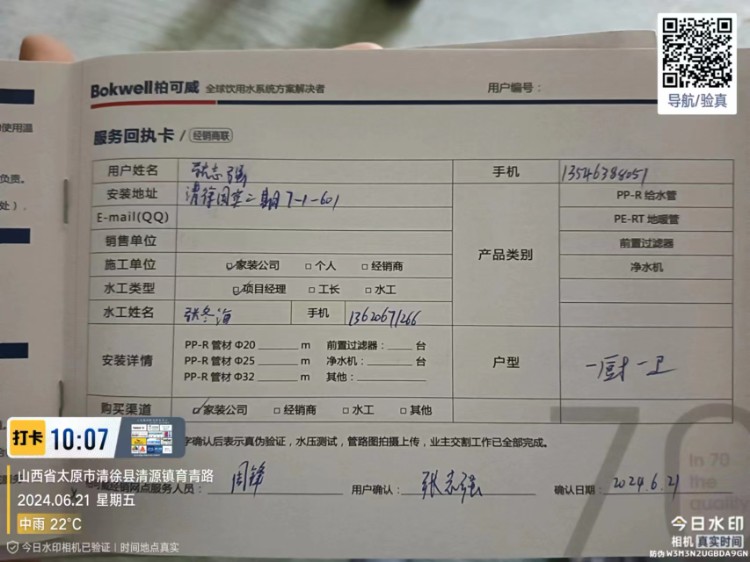 导航/验真
Bokwell柏可威 全球饮用水系统方案解决者 用户编号:
服务回执卡/ 经销商联
使用温
负责。
处)、
用户姓名 张志强 手机 13546384051
安装地址 清徐国宾二期7-1-601
E-mail(QQ)
销售单位
施工单位 ☑家装公司 □个人 □经销商
水工类型 ☑项目经理 □工长 □水工
水工姓名 张冬海 手机 13620671266
产品类别
PP-R 给水管
PE-RT 地暖管
前置过滤器
净水机
安装详情
PP-R 管材 Φ20 ______ m 前置过滤器:____ 台
PP-R 管材 Φ25 ______ m 净水机:____ 台
PP-R 管材 Φ32 ______ m 其他:______
户型 一厨一卫
购买渠道 ☑家装公司 □经销商 □水工 □其他
字确认后表示真伪验证,水压测试,管路图拍摄上传,业主交割工作已全部完成。
可威经销网点服务人员: 周锋 用户确认: 张志强 确认日期: 2024.6.21
70
In 70
the
quality
打卡 10:07
山西省太原市清徐县清源镇育青路
2024.06.21 星期五
中雨 22°C
今日水印相机已验证 | 时间地点真实
今日水印
相机 真实时间
防伪 W3M3N2UGBDA9GN